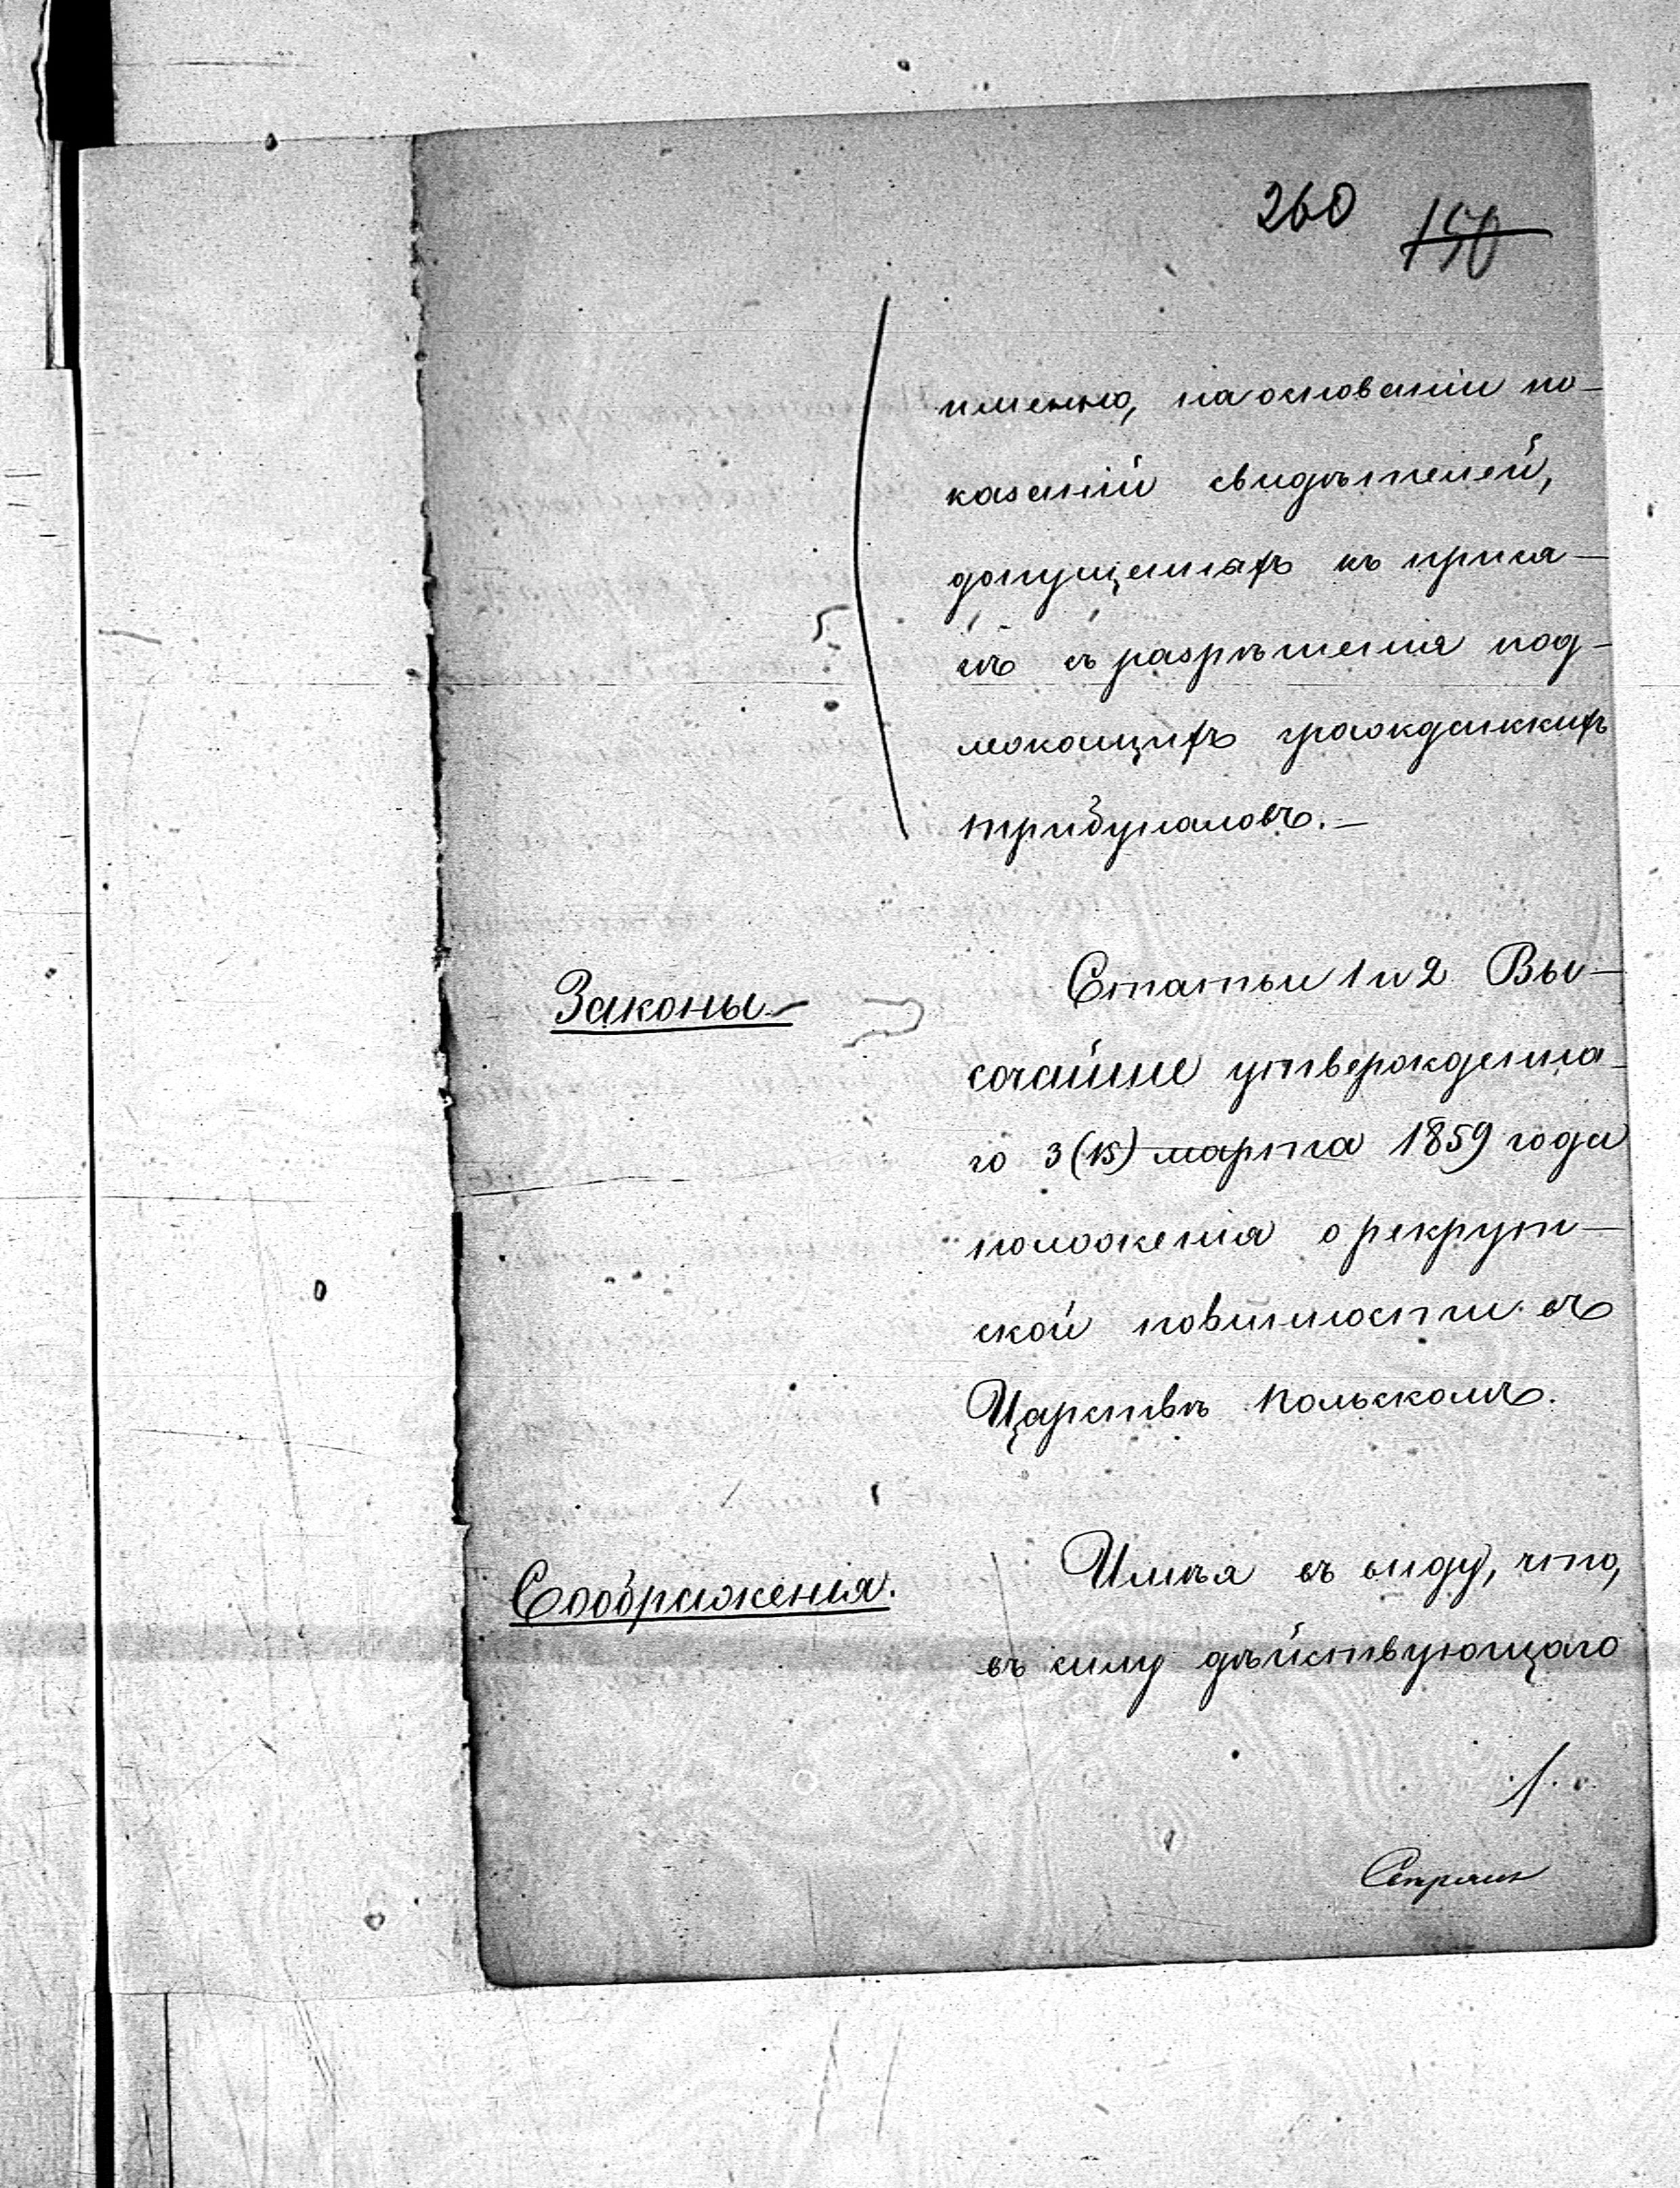 260 150
именно, на основаніи по-
казаній свидѣтелей,
допущенныхъ къ прися-
гѣ съ разрѣшенія под-
лежащихъ гражданскихъ
трибуналовъ.—
Законы
Статьи 1 и 2 Вы-
сочайше утвержденна-
го 3 (15) марта 1859 года
положенія о рекрут-
ской повинности въ
Царствѣ Польскомъ.
Соображенія.
Имѣя въ виду, что,
въ силу дѣйствующаго